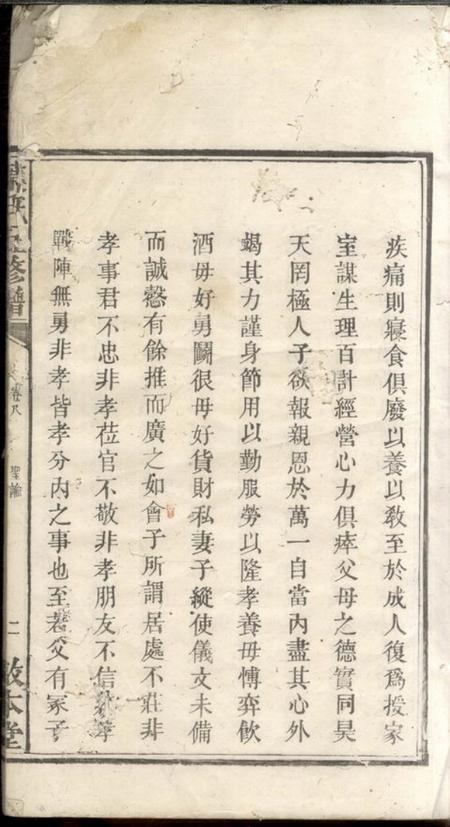 疾痛則寢食俱廢以養以教至於成人復爲授家
室謀生理百計經營心力俱瘁父母之德實同昊
天罔極人子欲報親恩於萬一自當內盡其心外
竭其力謹身節用以勤服勞以隆孝養毋博弈飲
酒毋好勇鬬很毋好貨財私妻子縱使儀文未備
而誠慤有餘推而廣之如曾子所謂居處不莊非
孝事君不忠非孝莅官不敬非孝朋友不信非孝
戰陣無勇非孝皆孝分內之事也至若父有冢子
氏五修譜
卷八
聖諭
二
敦本堂